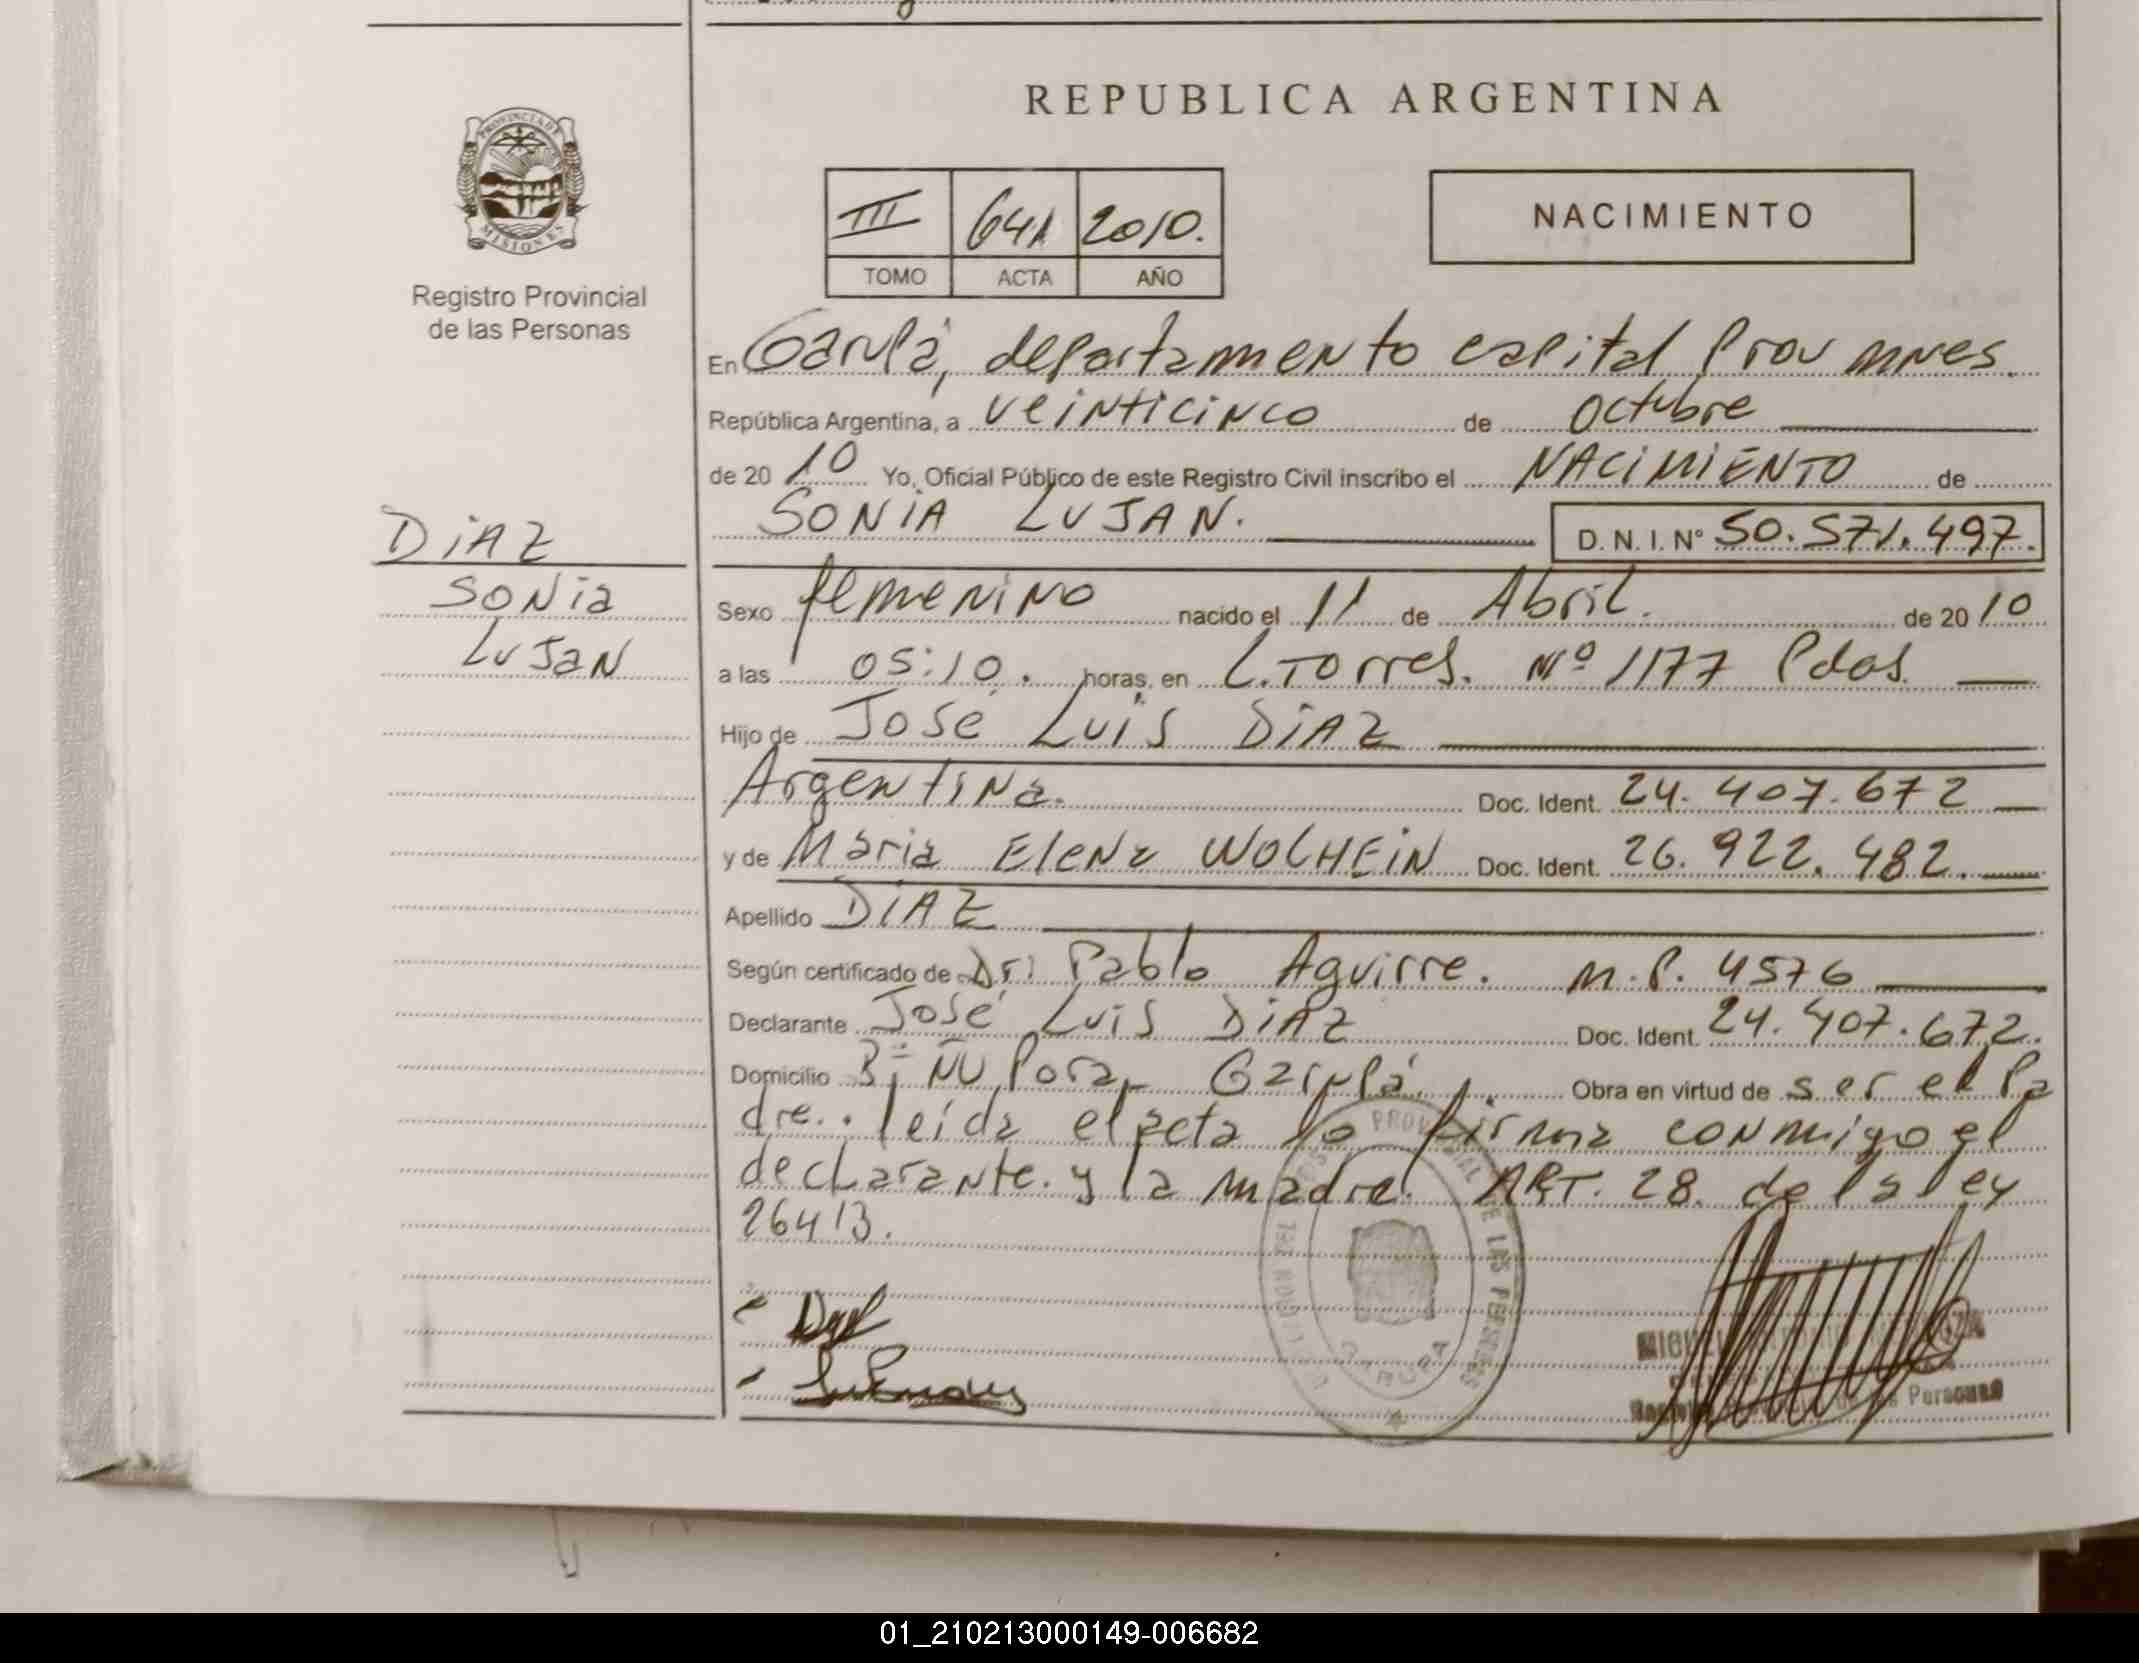 PROVINCIA DE
MISIONES
Registro Provincial
de las Personas
DIAZ
SONia
LUJaN
REPUBLICA ARGENTINA
III 641 2010.
TOMO ACTA AÑO
NACIMIENTO
En Garupá, departamento capital Prov mnes.
República Argentina, a veinticinco de octubre
de 20 10 Yo, Oficial Público de este Registro Civil inscribo el NACIMIENTO de
SONIA LUJAN. D. N. I. N° 50.571.497.
Sexo femenino nacido el 11 de Abril. de 20 10
a las 05:10. horas, en L. Torres. Nº 1177 Pdas.
Hijo de José Luis DIAZ
Argentina. Doc. Ident. 24.407.672
y de Maria Elena WOLHEIN Doc. Ident. 26.922.482.
Apellido DIAZ
Según certificado de Dr. Pablo Aguirre. M.P. 4576
Declarante José Luis DIAZ Doc. Ident. 24.407.672.
Domicilio Bº ÑU Pora, Garupá. Obra en virtud de ser el Pa
dre. leida el acta lo firma conmigo el
declarante. y la madre. ART. 28. de la ley
26413.
PROVINCIAL DE LAS PERSONAS
GARUPA
de las Personas
01_210213000149-006682